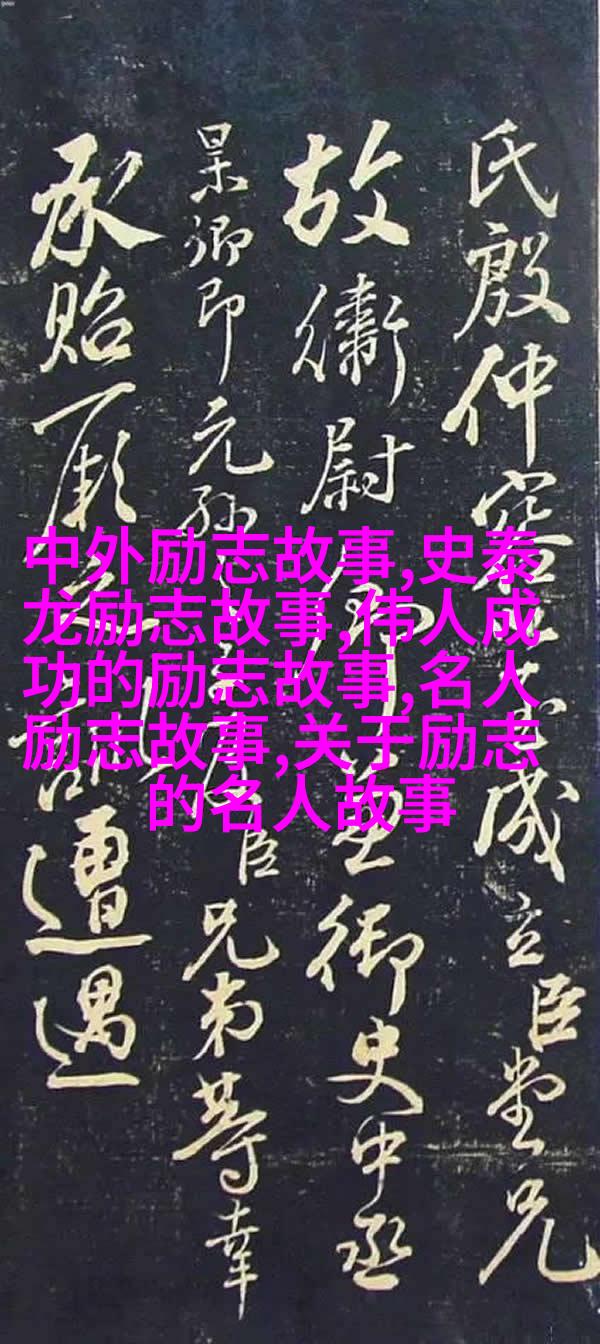 氏殷仲容成立臣堂兄
故衛尉卿兼御史中丞
杲卿即元孫臣兄弟等幸
承貽厥之訓遭遇
中外励志故事,史泰
龙励志故事,伟人成
功的励志故事,名人
励志故事,关于励志
的名人故事